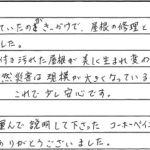 ていたのがきっかけで、屋根の修理と
した。
付き汚れた屋根が美しく生まれ変わ
然災害は規模が大きくなっている
これで少し安心です。
運んで説明して下さった コーキペイン
ありがとうございました。